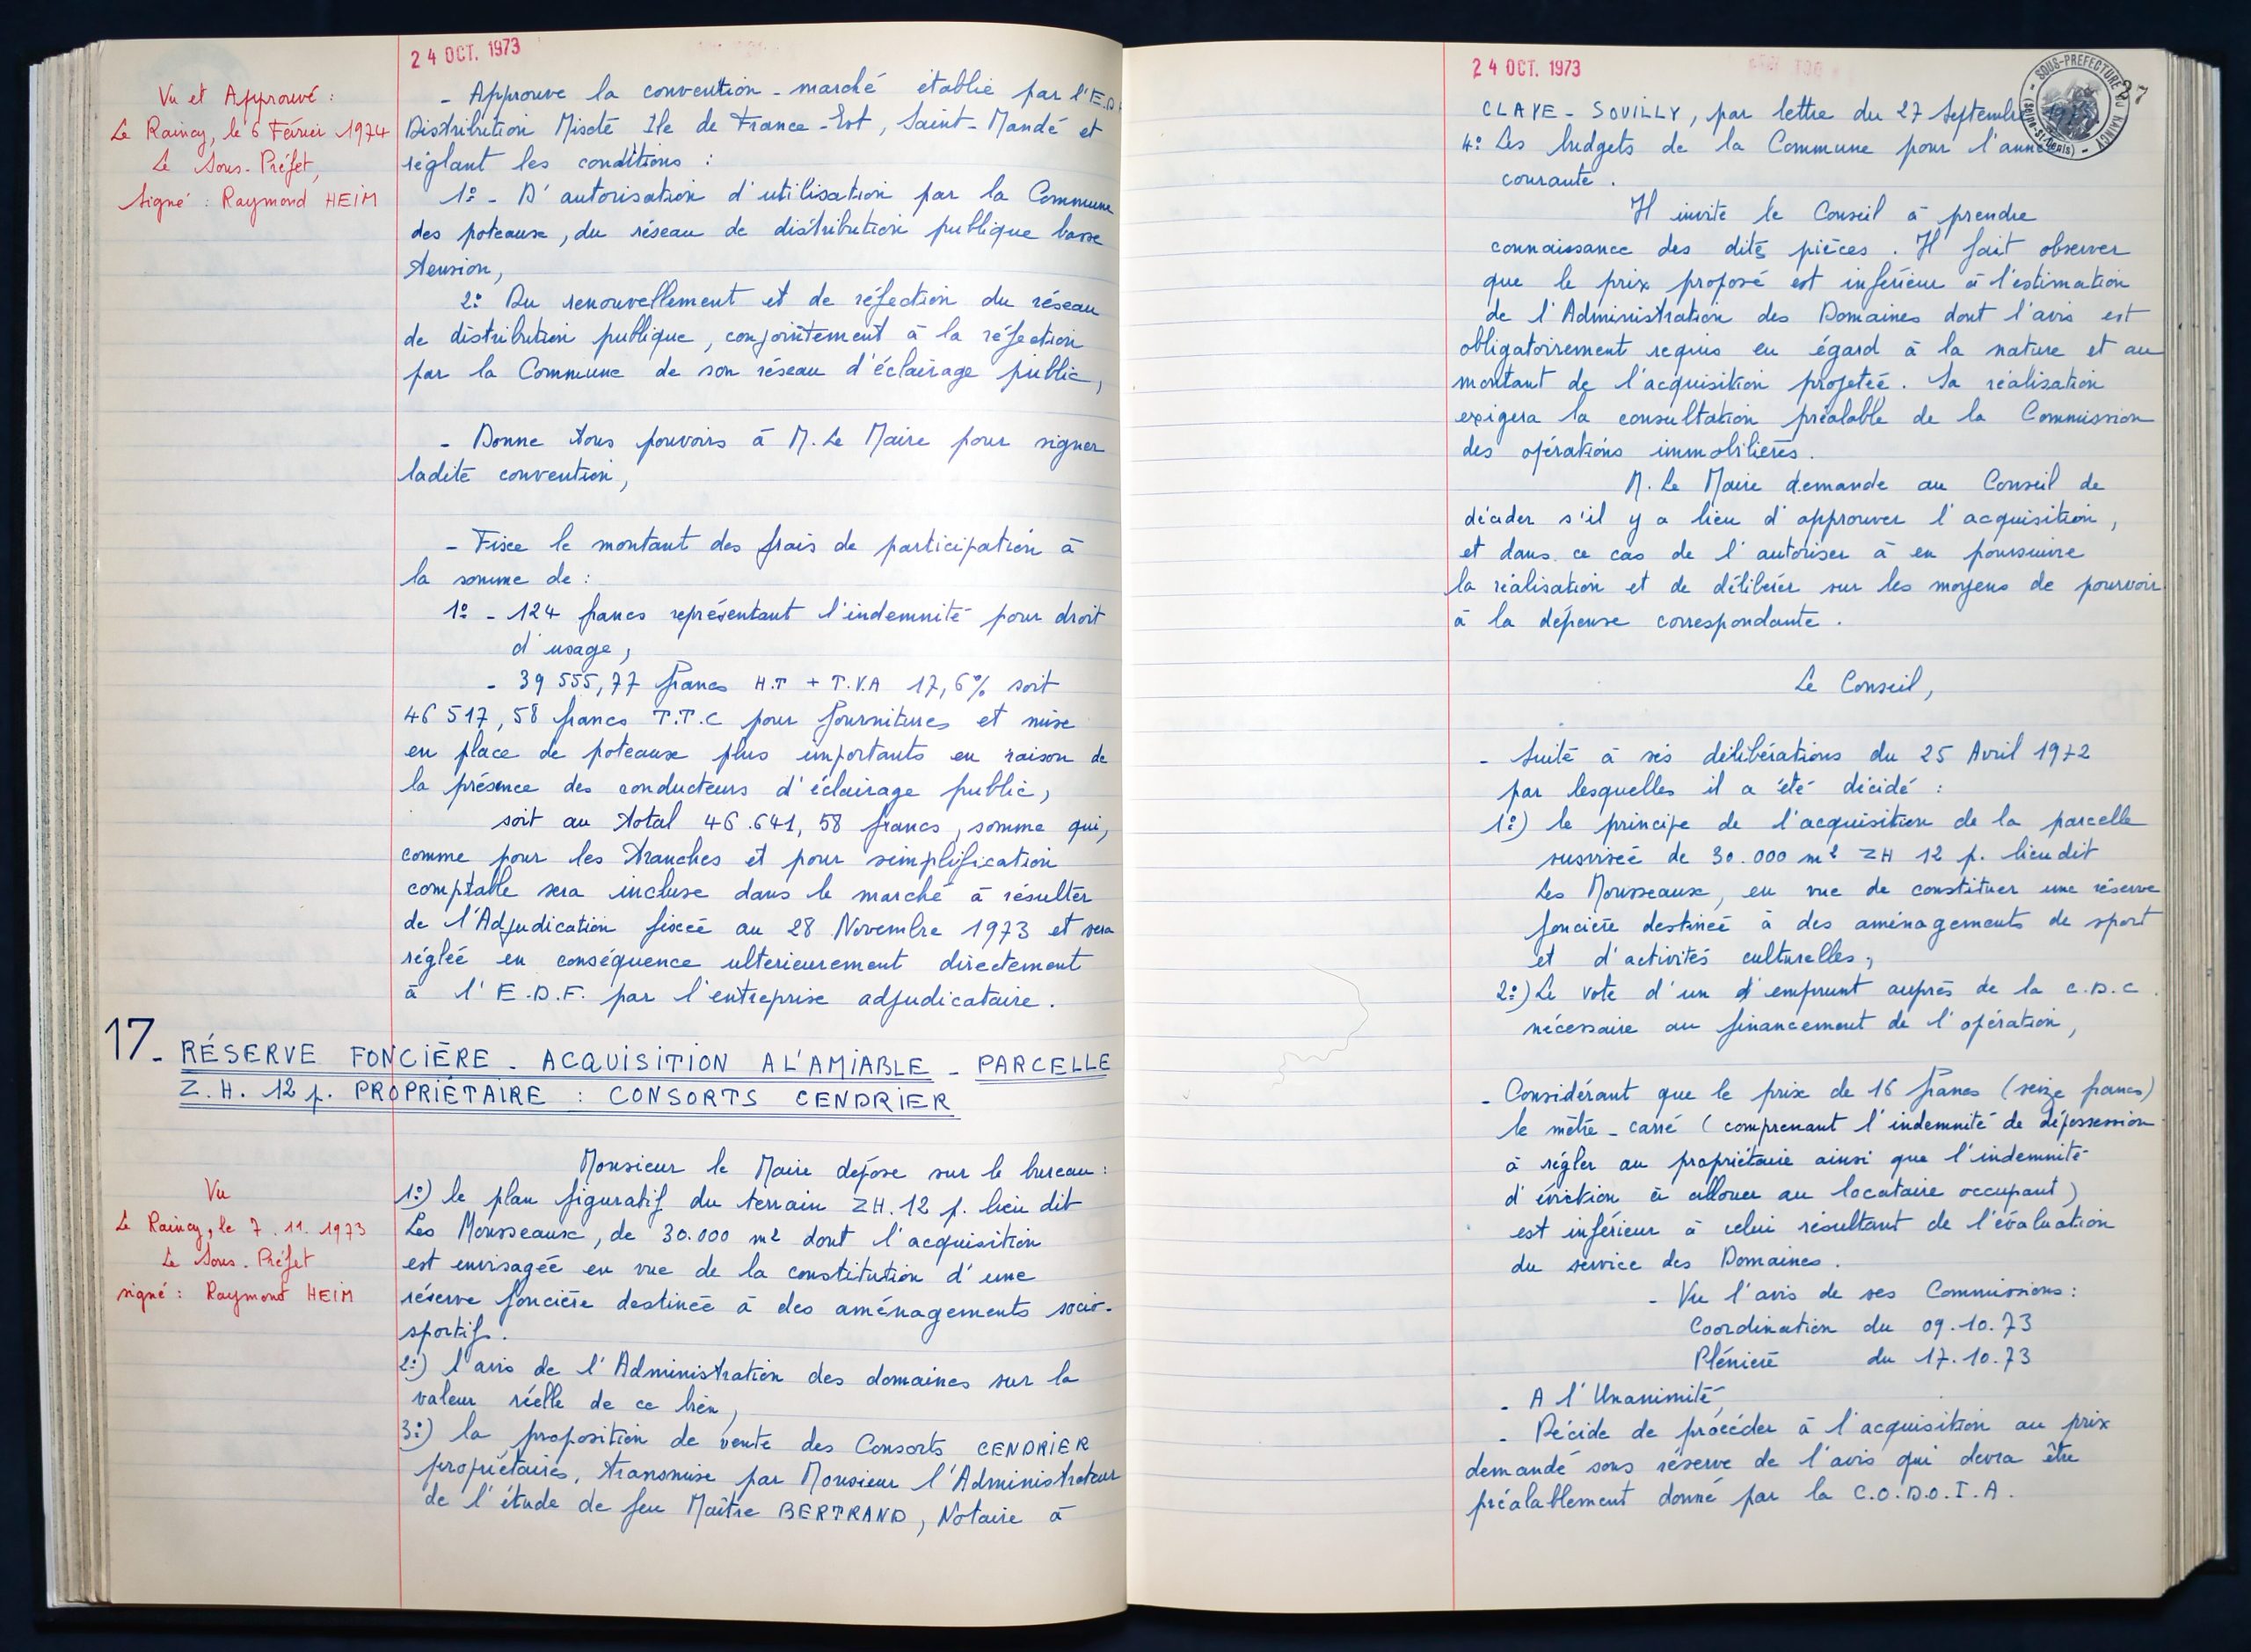 24 OCT. 1973
Vu et Approuvé :
Le Raincy, le 6 Février 1974
Le Sous-Préfet,
Signé : Raymond HEIM
- Approuve la convention-marché établie par l'E.D.
Distribution Mixte Ile de France-Est, Saint-Mandé et
réglant les conditions :
1º - D'autorisation d'utilisation par la Commune
des poteaux, du réseau de distribution publique basse
tension,
2º Du renouvellement et de réfection du réseau
de distribution publique, conjointement à la réfection
par la Commune de son réseau d'éclairage public,
- Donne tous pouvoirs à M. Le Maire pour signer
ladite convention,
- Fixe le montant des frais de participation à
la somme de :
1º - 124 francs représentant l'indemnité pour droit
d'usage,
- 39 555,77 francs H.T + T.V.A 17,6% soit
46 517,58 francs T.T.C pour fournitures et mise
en place de poteaux plus importants en raison de
la présence des conducteurs d'éclairage public,
soit au total 46.641,58 francs, somme qui,
comme pour les tranches et pour simplification
comptable sera incluse dans le marché à résulter
de l'Adjudication fixée au 28 Novembre 1973 et sera
réglée en conséquence ulterieurement directement
à l'E.D.F. par l'entreprise adjudicataire.
17. RÉSERVE FONCIÈRE - ACQUISITION A L'AMIABLE - PARCELLE
Z.H. 12 p. PROPRIÉTAIRE : CONSORTS CENDRIER
Vu
Le Raincy, le 7.11.1973
Le Sous-Préfet
signé : Raymond HEIM
Monsieur le Maire dépose sur le bureau :
1º) le plan figuratif du terrain ZH.12 p. lieu dit
Les Mousseaux, de 30.000 m2 dont l'acquisition
est envisagée en vue de la constitution d'une
réserve foncière destinée à des aménagements socio-
sportifs.
2º) l'avis de l'Administration des domaines sur la
valeur réelle de ce bien,
3º) la proposition de vente des Consorts CENDRIER
propriétaires, transmise par Monsieur l'Administrateur
de l'étude de feu Maître BERTRAND, Notaire à
24 OCT. 1973
SOUS-PREFECTURE DU RAINCY
(Seine-St-Denis)
CLAYE-SOUILLY, par lettre du 27 Septembre
4º Les budgets de la Commune pour l'année
courante.
Il invite le Conseil à prendre
connaissance des dites pièces. Il fait observer
que le prix proposé est inférieur à l'estimation
de l'Administration des Domaines dont l'avis est
obligatoirement requis en égard à la nature et au
montant de l'acquisition projetée. Sa réalisation
exigera la consultation préalable de la Commission
des opérations immobilières.
M. Le Maire demande au Conseil de
décider s'il y a lieu d'approuver l'acquisition,
et dans ce cas de l'autoriser à en poursuivre
la réalisation et de délibérer sur les moyens de pourvoir
à la dépense correspondante.
Le Conseil,
- Suite à ses délibérations du 25 Avril 1972
par lesquelles il a été décidé :
1º) le principe de l'acquisition de la parcelle
susvisée de 30.000 m2 ZH 12 p. lieu dit
Les Mousseaux, en vue de constituer une réserve
foncière destinée à des aménagements de sport
et d'activités culturelles,
2º) Le vote d'un d'emprunt auprès de la C.D.C.
nécessaire au financement de l'opération,
- Considérant que le prix de 16 francs (seize francs)
le mètre-carré (comprenant l'indemnité de dépossession
à régler au propriétaire ainsi que l'indemnité
d'éviction à allouer au locataire occupant)
est inférieur à celui résultant de l'évaluation
du service des Domaines.
- Vu l'avis de ses Commissions :
Coordination du 09.10.73
Plénière du 17.10.73
- A l'Unanimité,
- Décide de procéder à l'acquisition au prix
demandé sous réserve de l'avis qui devra être
préalablement donné par la C.O.D.O.I.A.